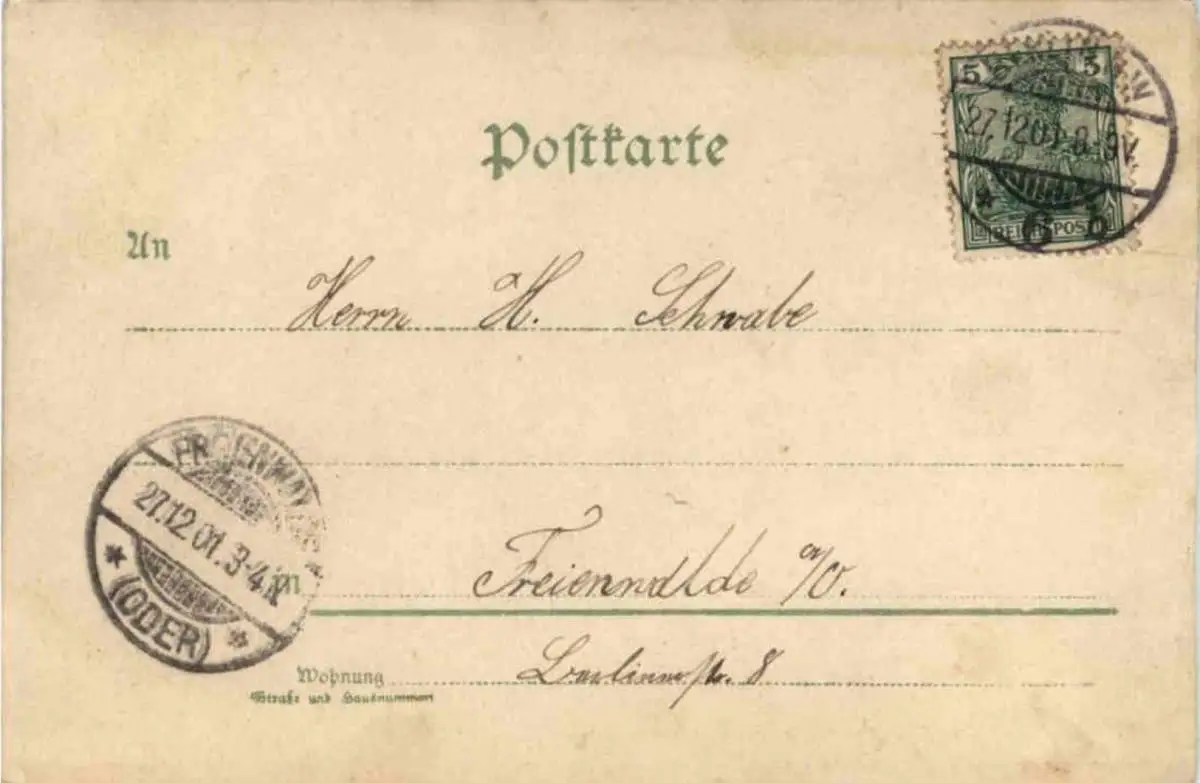 Postkarte
5 5
27.12.01. 8-9V.
REICHSPOST
* 6 b
An
Herrn H. Schwabe
FREIENWALDE
27.12.01. 3-4N.
* (ODER) *
in
Freienwalde a/O.
Wohnung
Straße und Hausnummer
Berlinerstr. 8